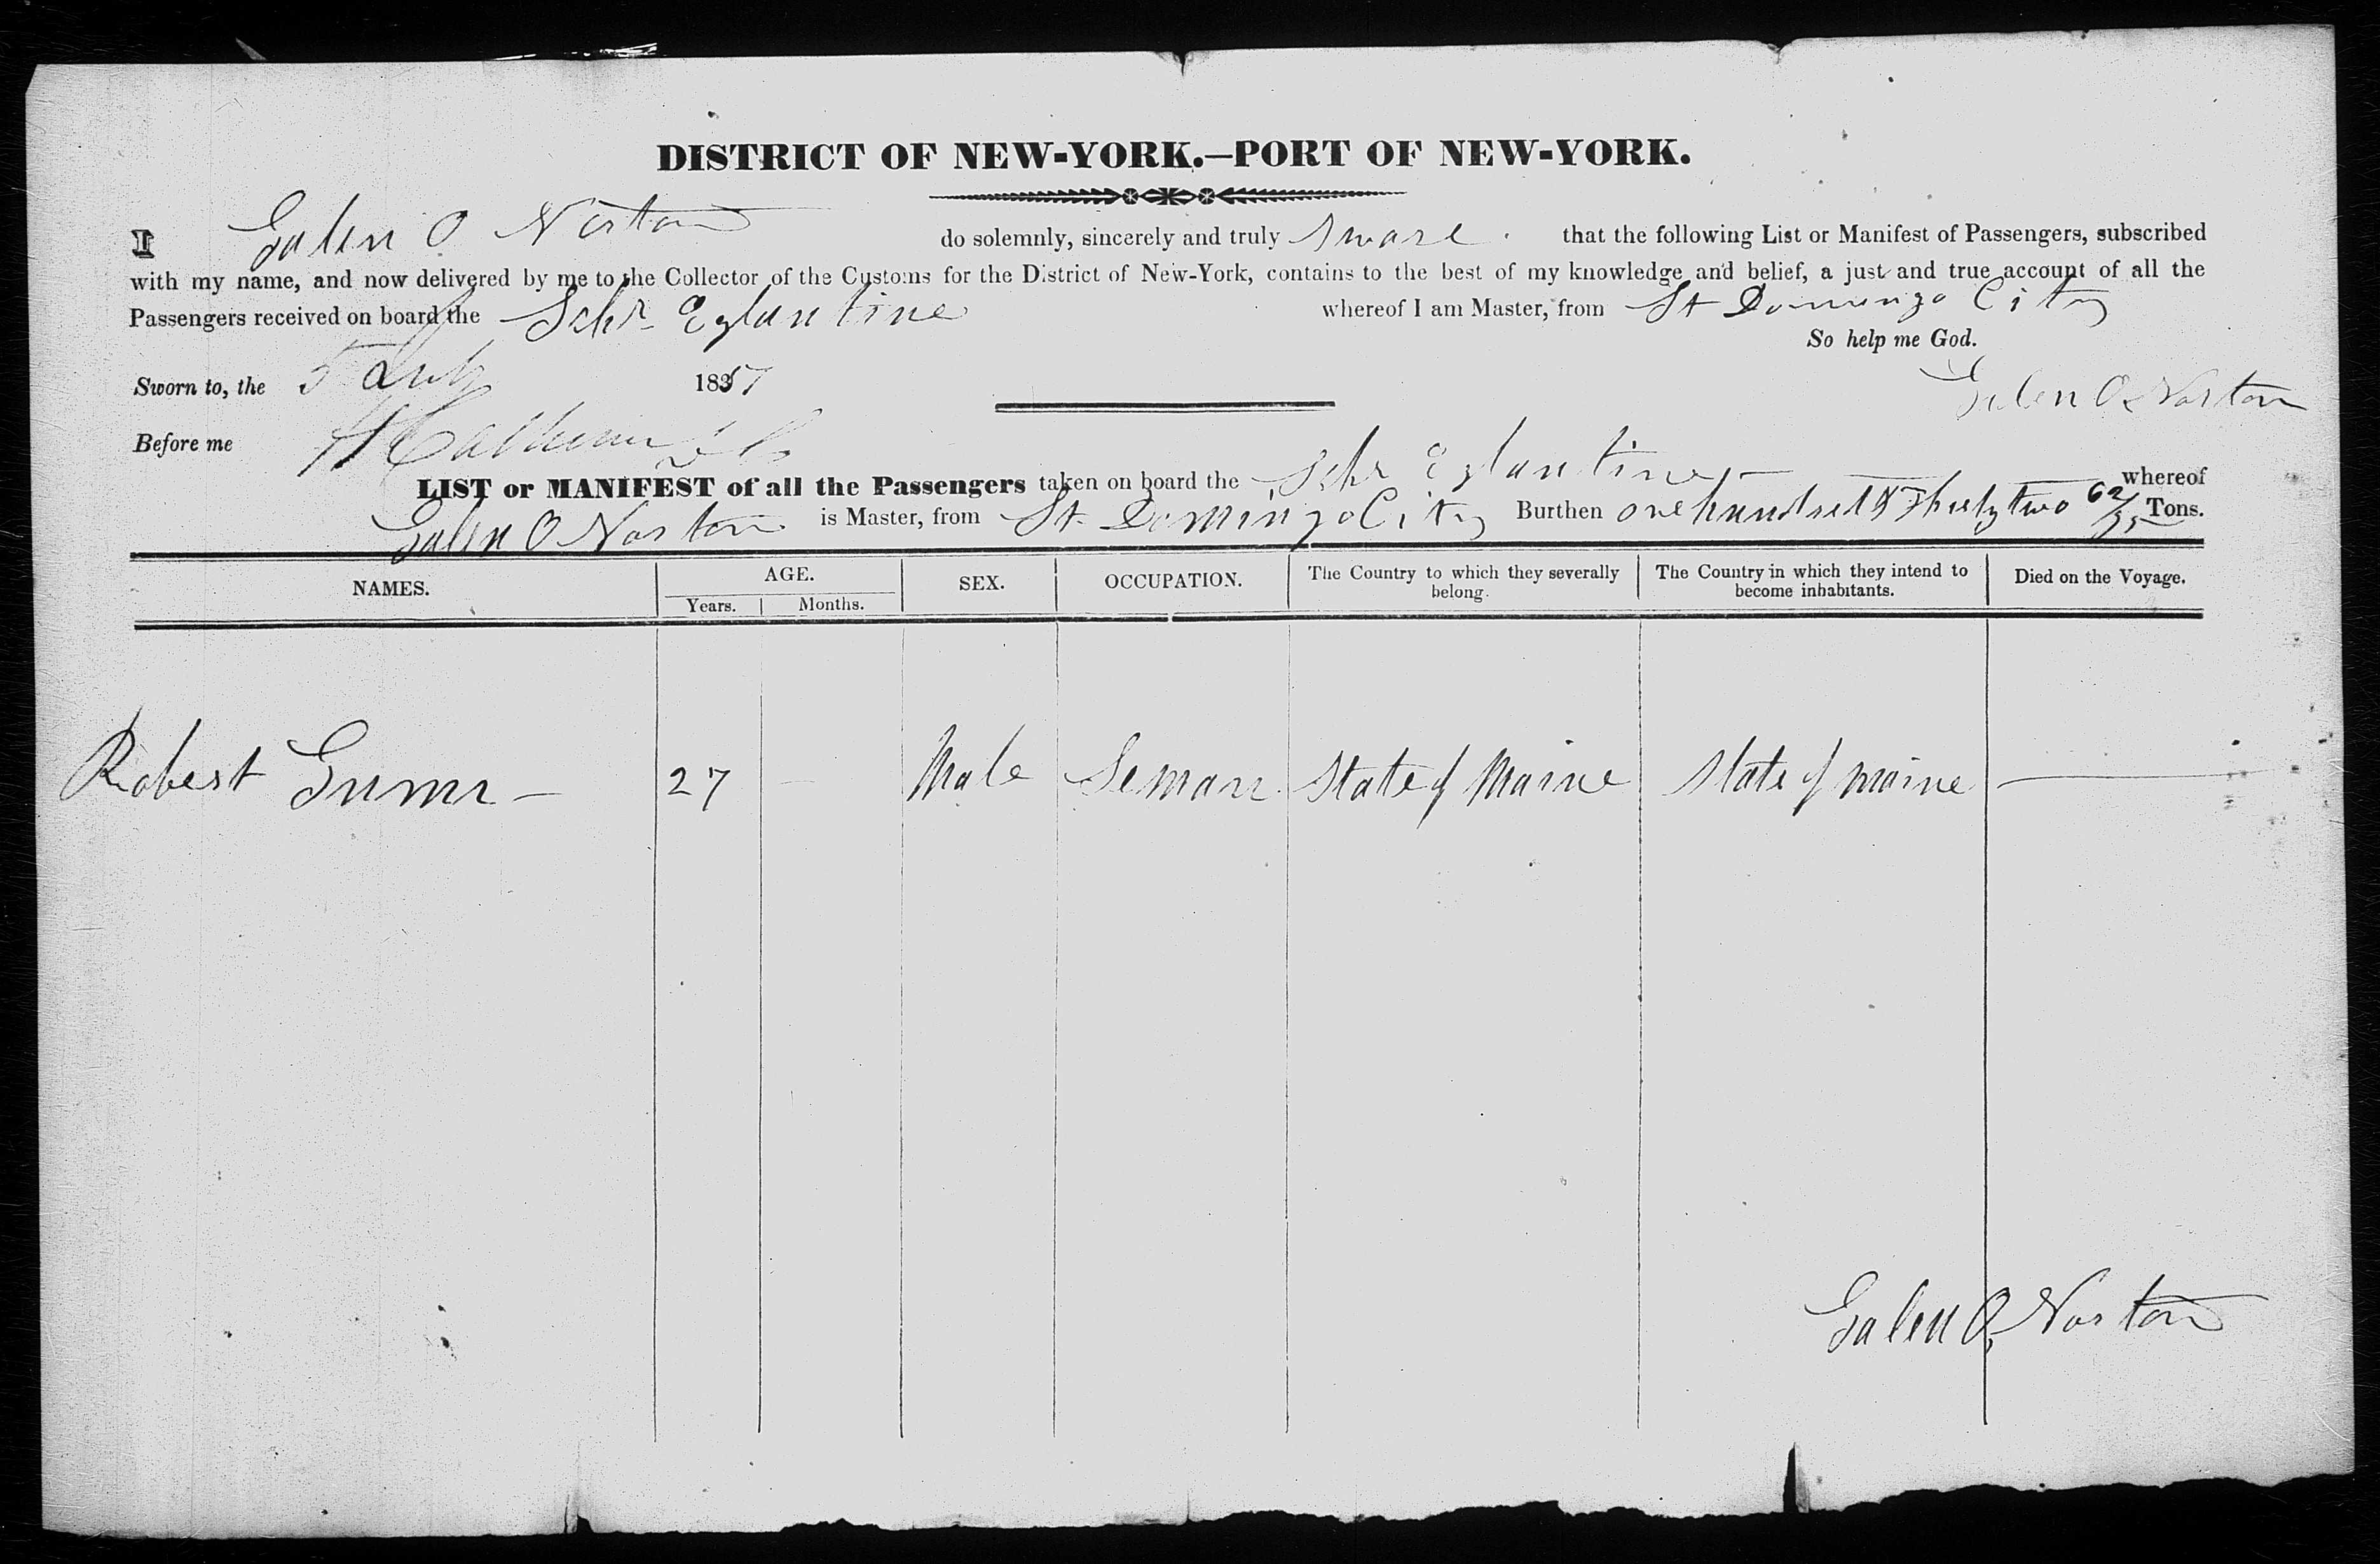 DISTRICT OF NEW-YORK.—PORT OF NEW-YORK.
I Galen O Norton do solemnly, sincerely and truly Sware. that the following List or Manifest of Passengers, subscribed
with my name, and now delivered by me to the Collector of the Customs for the District of New-York, contains to the best of my knowledge and belief, a just and true account of all the
Passengers received on board the Schr Eglantine whereof I am Master, from St Domingo City
So help me God.
Sworn to, the 5 July 1857
Galen O Norton
Before me
LIST or MANIFEST of all the Passengers taken on board the Schr Eglantine whereof
Galen O Norton is Master, from St Domingo City Burthen one hundred & Thirty two 62/95 Tons.
NAMES. AGE. SEX. OCCUPATION. The Country to which they severally belong. The Country in which they intend to become inhabitants. Died on the Voyage.
Years. Months.
Robert — 27 — Male Seman State of Maine State of maine —
Galen O Norton